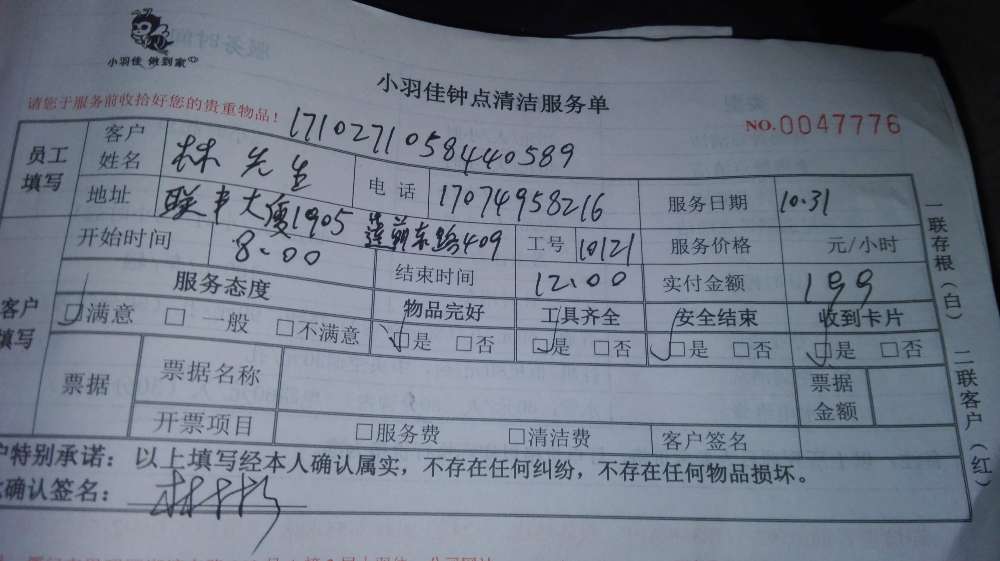 小羽佳 做到家
小羽佳钟点清洁服务单
请您于服务前收拾好您的贵重物品！
NO.0047776
171027105844 0589
员工填写 客户姓名 林先生 电话 17074958216 服务日期 10.31
地址 联丰大厦1905 莲前东路409 工号 10121 服务价格 元/小时
开始时间 8:00 结束时间 12:00 实付金额 199
客户填写 服务态度 物品完好 工具齐全 安全结束 收到卡片
□满意 □一般 □不满意 □是 □否 □是 □否 □是 □否 □是 □否
票据 票据名称 票据金额
开票项目 □服务费 □清洁费 客户签名
户特别承诺：以上填写经本人确认属实，不存在任何纠纷，不存在任何物品损坏。
确认签名：
一联存根（白）二联客户（红）